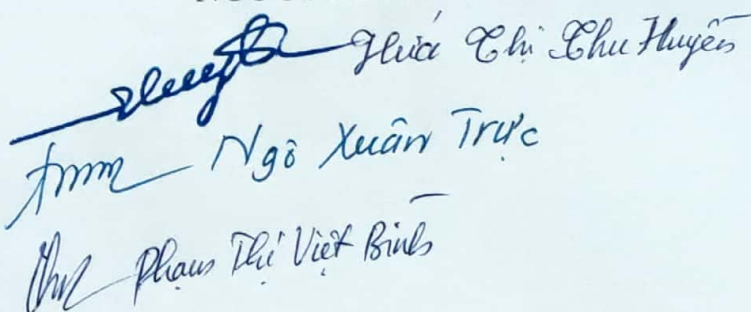 Hứa Thị Thu Huyền
Ngô Xuân Trực
Phạm Thị Việt Bình